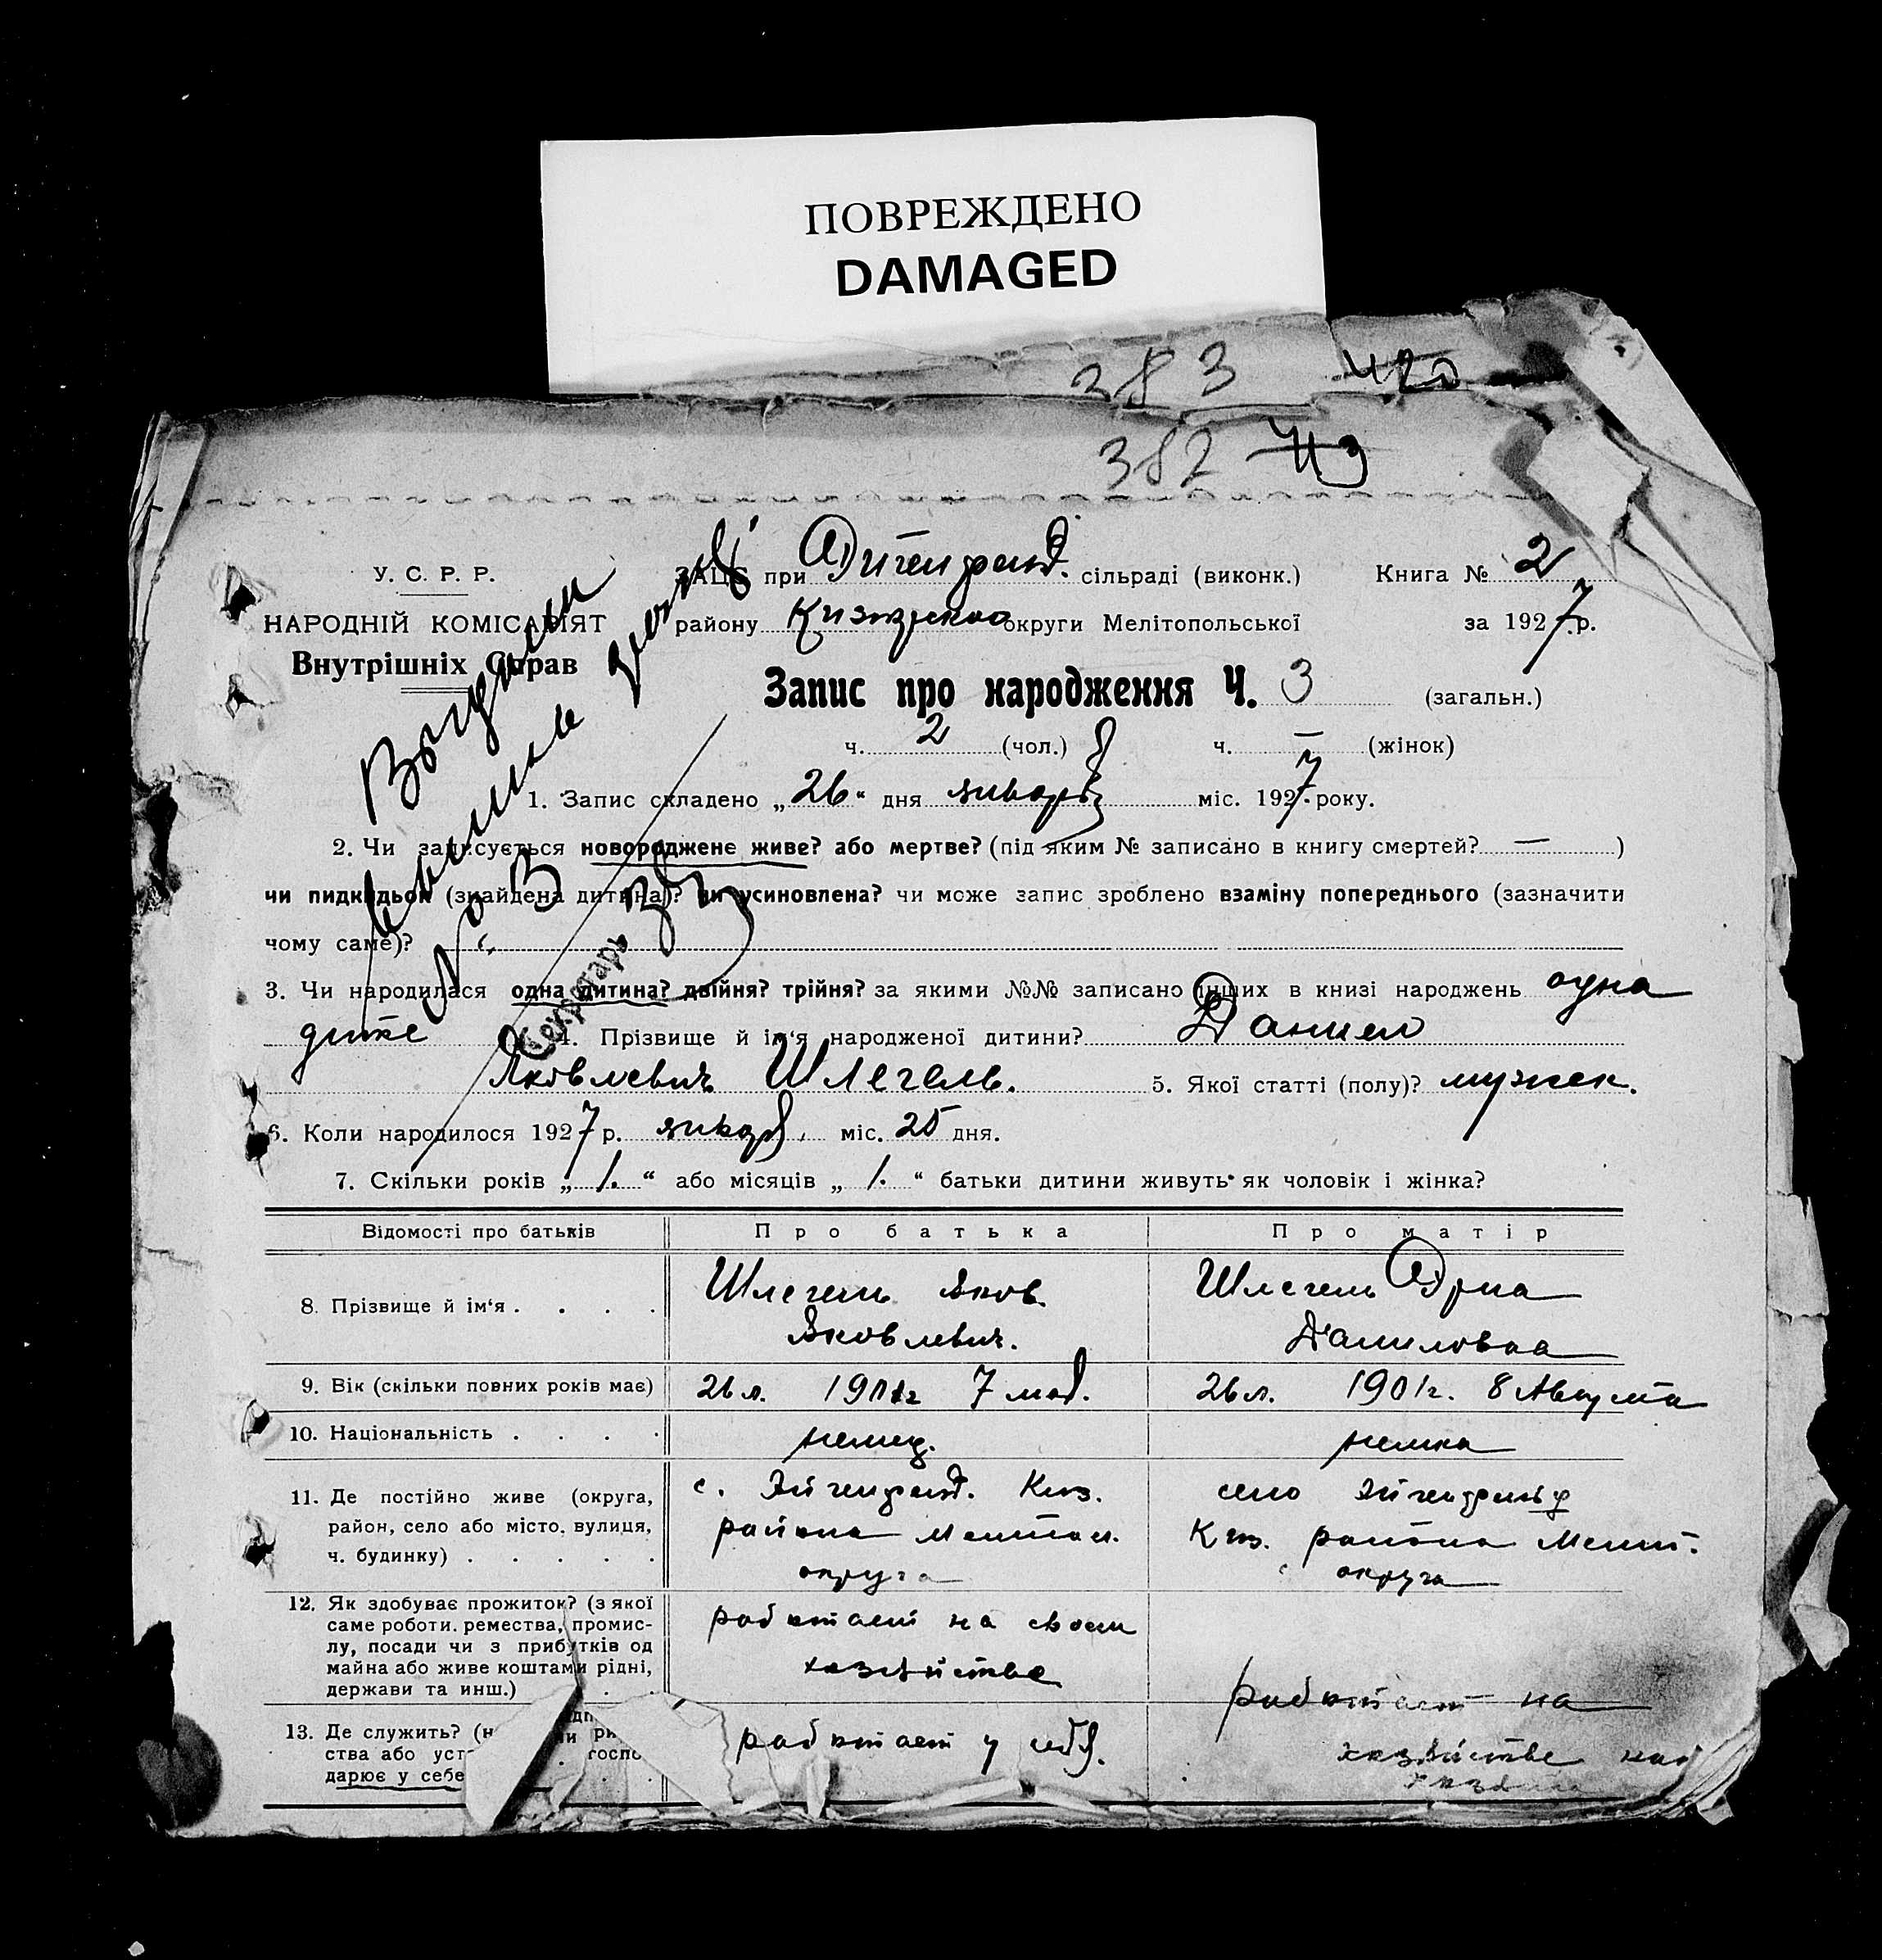 ПОВРЕЖДЕНО
DAMAGED
383 420
382 413
У. С. Р. Р.
НАРОДНІЙ КОМІСАРІЯТ
Внутрішніх Справ
ЗАЦС при Эйгенфельд. сільраді (виконк.) Книга № 2
району округи Мелітопольської за 1927 р.
Запис про народження Ч. 3 (загальн.)
ч. 2 (чол.) ч. — (жінок)
1. Запис складено „26" дня января міс. 1927 року.
2. Чи записується новороджене живе? або мертве? (під яким № записано в книгу смертей? — )
чи пидкидьок (знайдена дитина)? чи усиновлена? чи може запис зроблено взаміну попереднього (зазначити
чому саме)?
3. Чи народилася одна дитина? двійня? трійня? за якими №№ записано інших в книзі народжень одна
4. Прізвище й ім'я народженої дитини? Даниел
Яковлевич Шлегель. 5. Якої статті (полу)? мужск.
6. Коли народилося 1927 р. января міс. 25 дня.
7. Скільки років „ 1. " або місяців „ 1. " батьки дитини живуть як чоловік і жінка?
Відомості про батьків Про батька Про матір
8. Прізвище й ім'я . . . . Шлегель Яков Шлегель
Яковлевич. Даниловна
9. Вік (скільки повних років має) 26 л. 7 26 л. 1901 г. 8 Августа
10. Національність . . . . немец. немка
11. Де постійно живе (округа, с. Киз. село
район, село або місто, вулиця, района Мелитоп. Киз. района Мелит.
ч. будинку) . . . . . округа округа
12. Як здобуває прожиток? (з якої
саме роботи. ремества, промис-
лу, посади чи з прибутків од
майна або живе коштами рідні,
держави та инш.) . .
работает на своем
хозяйстве
работает на
хозяйстве
13. Де служить? (н
ства або уст госпо
дарює у себе . . .
работает у себя.
Выдана
№ 3
Секретарь